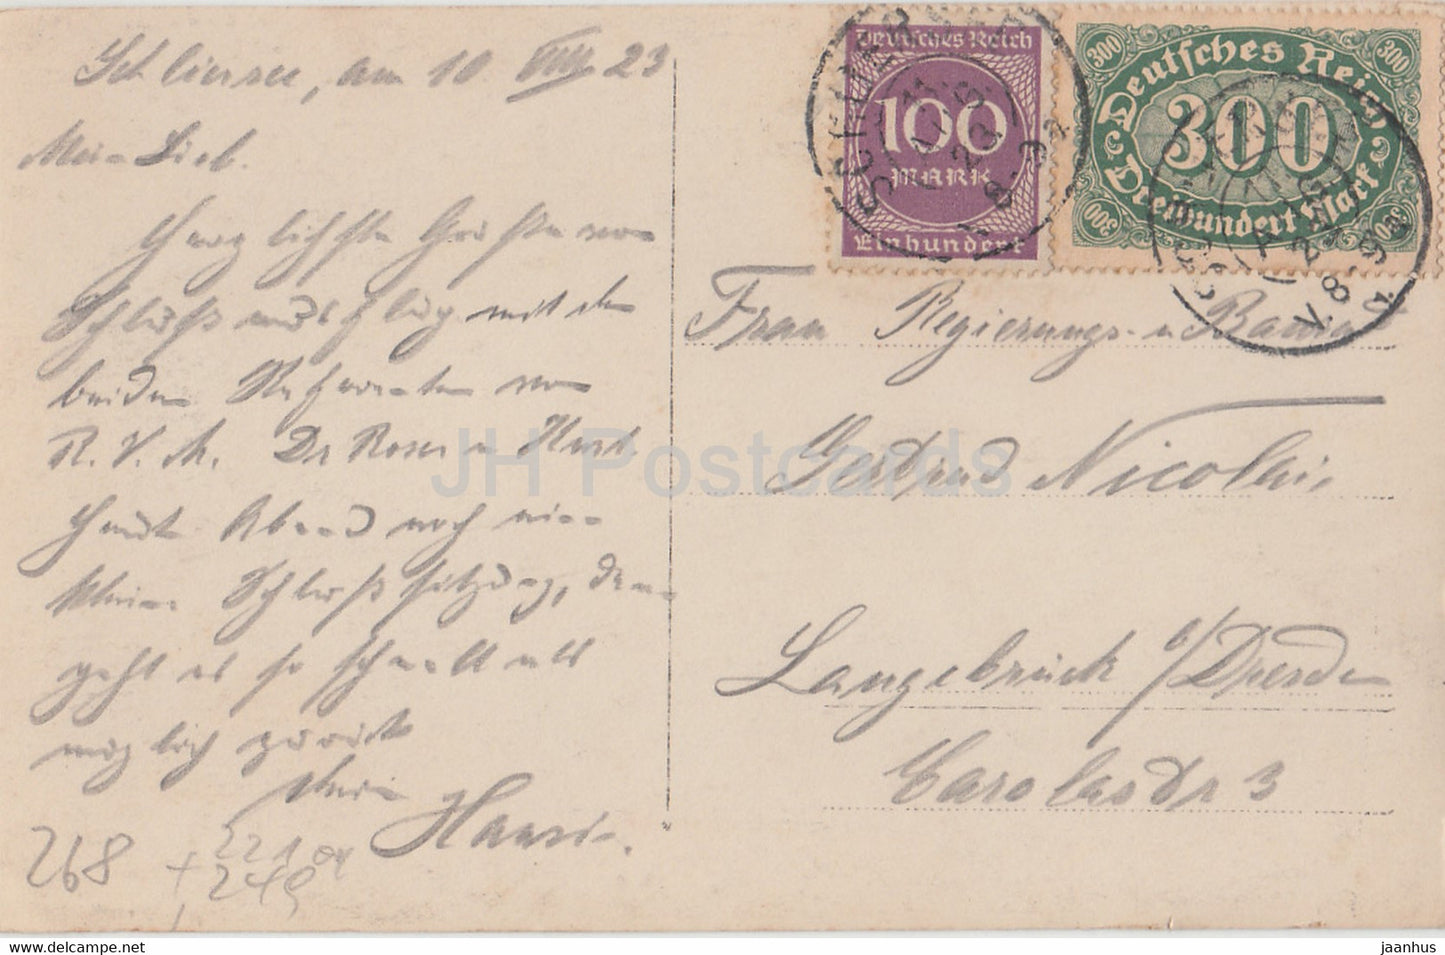 Schliersee, am 10 VIII 23
Mein Lieb.
Herzlichste Grüße vom
Schlußausflug mit den
beiden Referenten vom
R. V. M. Dr Roser u
Heute Abend noch eine
kleine Schlußsitzung, dann
geht es so schnell als
möglich zurück
Dein
Hansi.
268 + 221
249
Deutsches Reich
100
MARK
Einhundert
Deutsches Reich
300
Dreihundert Mark
300
300
300
300
SCHLIERSEE
Frau Regierungs- u Baurat
Gertrud Nicolai,
Langebrück b/Dresden
Carolastr 3
JH Postcards
www.delcampe.net
jaanhus